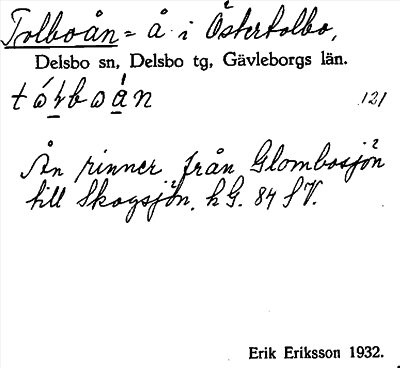 Tolboån = å i Östertolbo,
Delsbo sn, Delsbo tg, Gävleborgs län.
121
Ån rinner från Glombosjön
till Skogsjön. hG. 84 SV.
Erik Eriksson 1932.